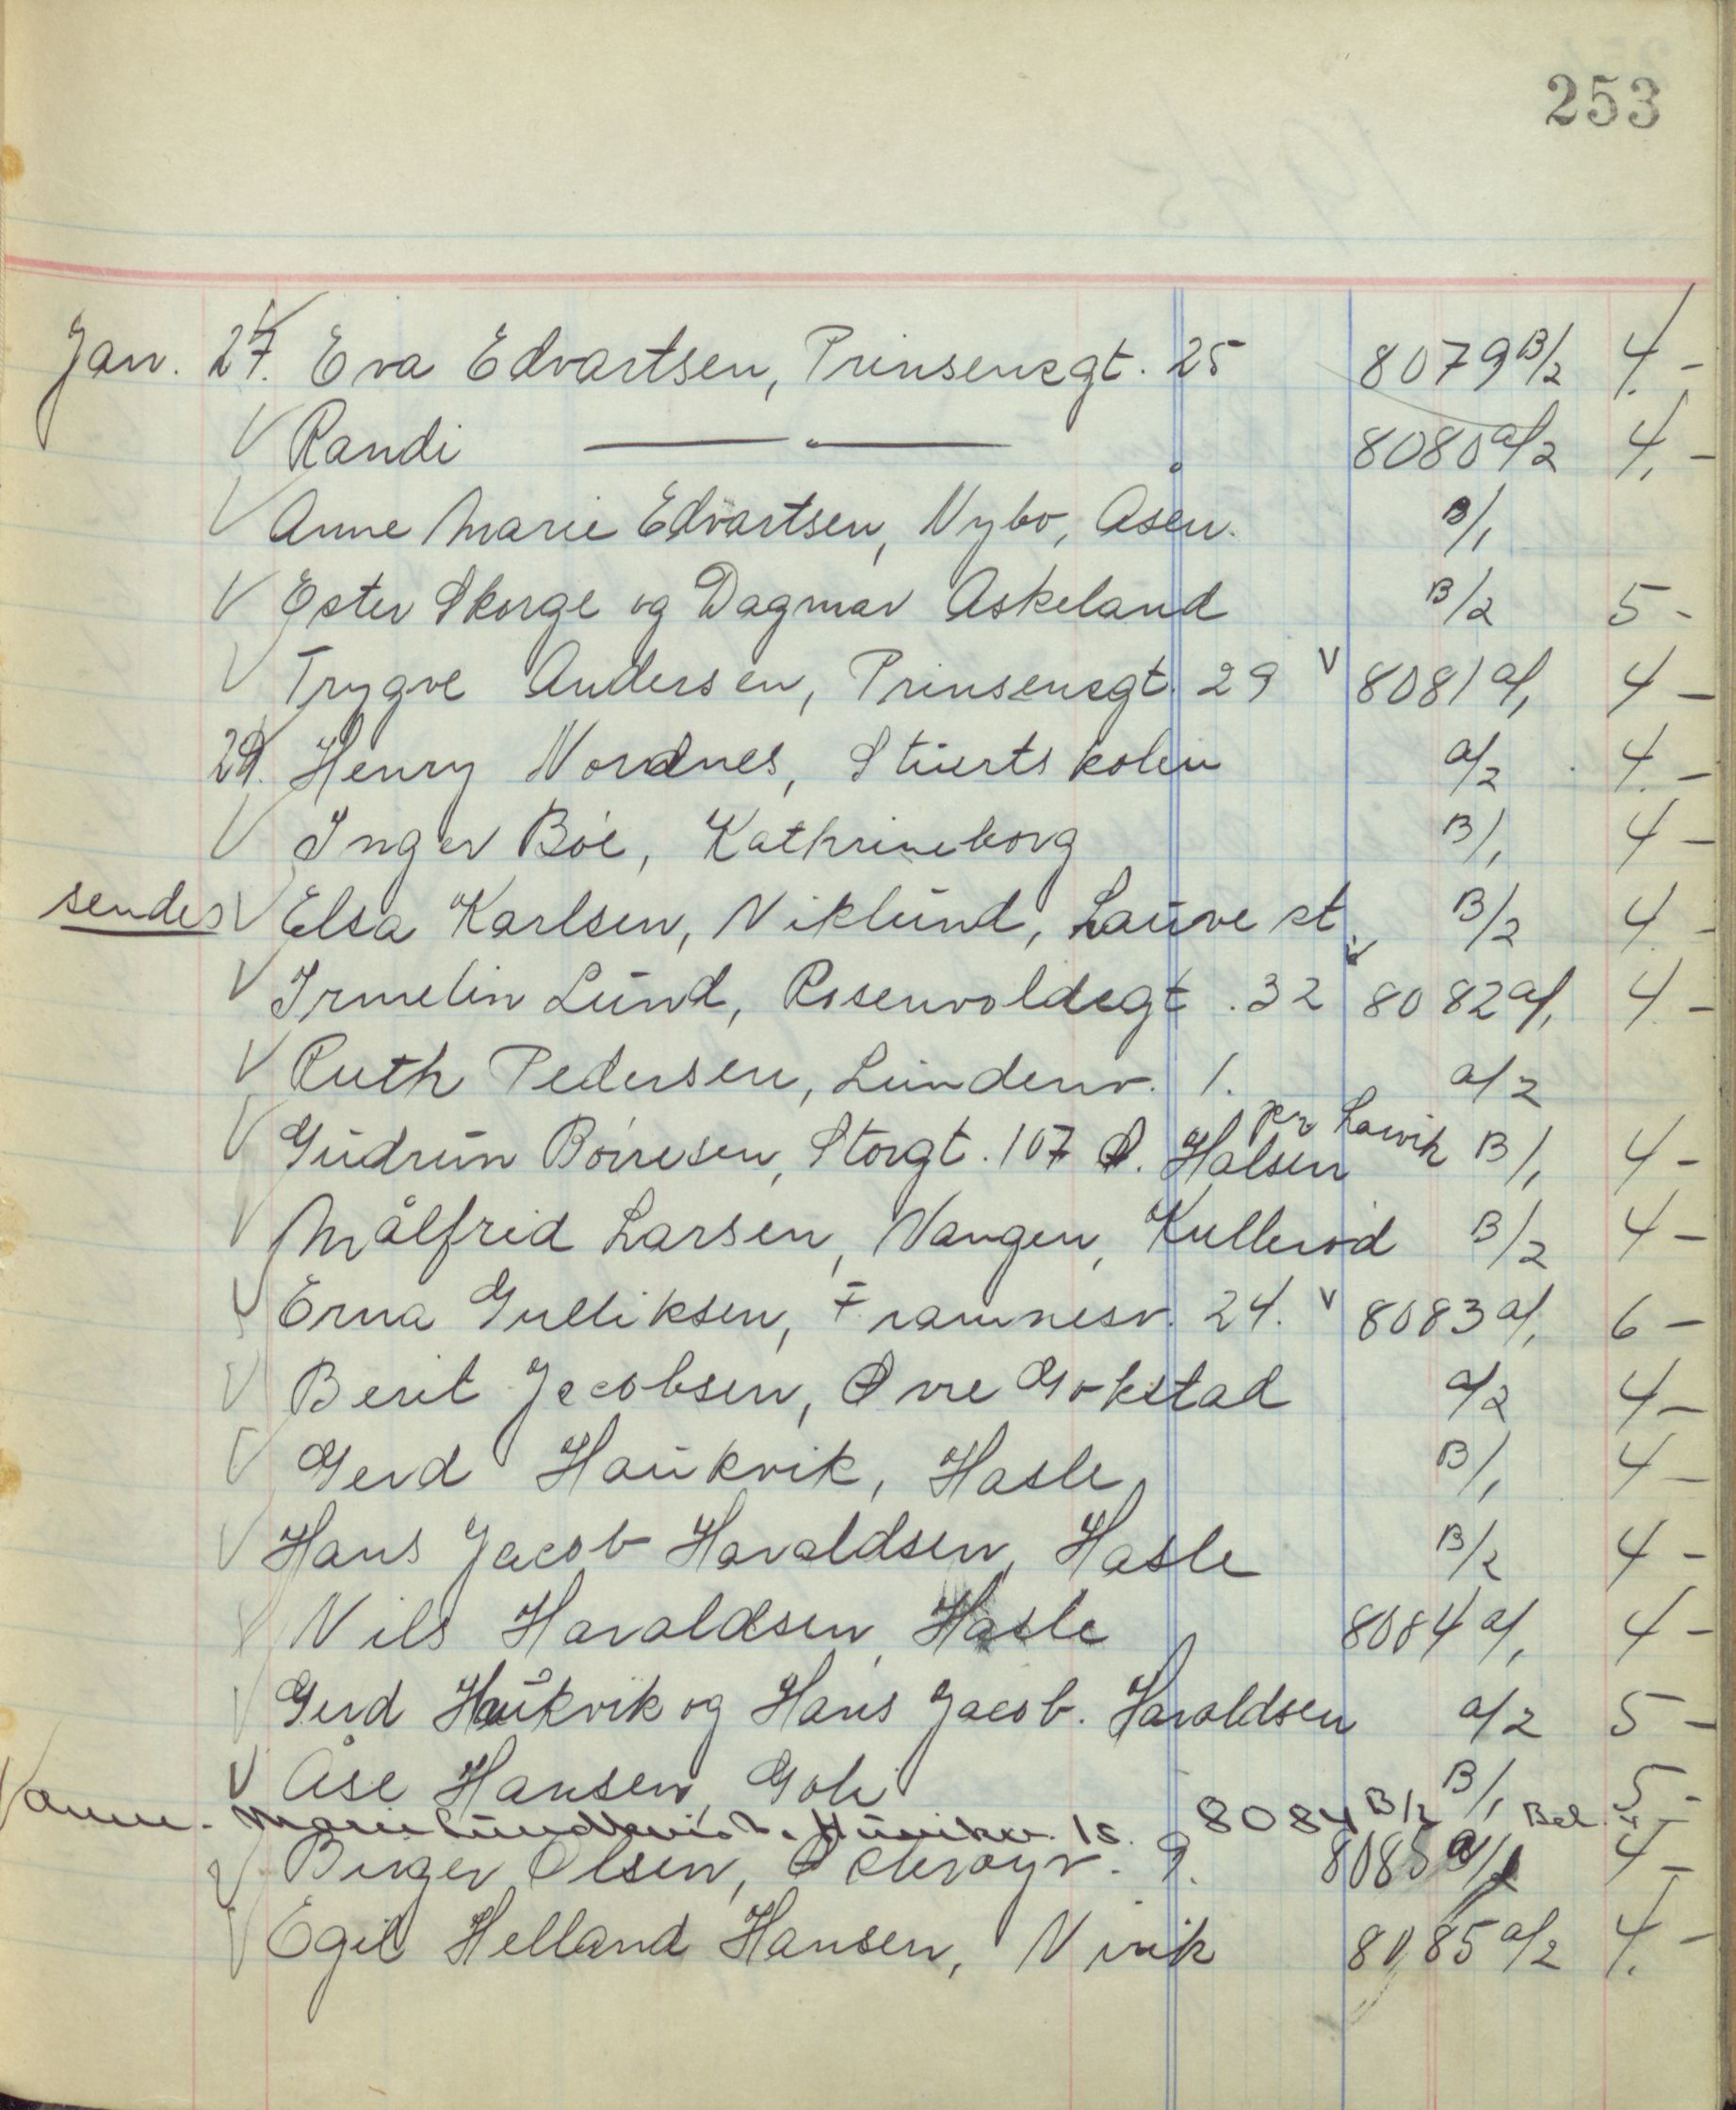 253
Jan. 27. Eva Edvartsen, Prinsensgt. 25 8079 B/2 4.-
V Randi —— " —— 8080 a/2 4.-
V Anne Marie Edvartsen, Nybo, Åsen. B/1
V Ester Skorge og Dagmar Askeland B/2 5-
V Trygve Andersen, Prinsensgt. 29 V 8081 a/1 4-
29. Henry Nordnes, Stüertskolen a/2 4.-
V Inger Bøe, Kathrineborg B/1 4-
sendes V Elsa Karlsen, Niklund, Lauve st. B/2 4.-
V Irmelin Lund, Rosenvoldsgt. 32 8082 a/1 4-
V Ruth Pedersen, Lundenv. 1. a/2
V Gudrun Børresen, Storgt. 107 Ø. Halsen pr Larvik B/1 4-
V Målfrid Larsen, Vangen, Kullerød B/2 4-
V Erna Gulliksen, Framnesv. 24. V 8083 a/1 6-
V Berit Jacobsen, Øvre Gokstad a/2 4-
V Gerd Haukvik, Hasle B/1 4-
V Hans Jacob Haraldsen, Hasle B/2 4-
V Nils Haraldsen, Hasle 8084 a/1 4-
V Gerd Haukvik og Hans Jacob. Haraldsen a/2 5-
V Åse Hansen, Goli B/1 5-
V Anne-Marie Lundkvist, 15. 8084 B/2 Bet. 4-
V Birger Olsen, Østerøyv. 9. 8085 a/1 4-
V Egil Helland Hansen, Virik 8085 a/2 4.-